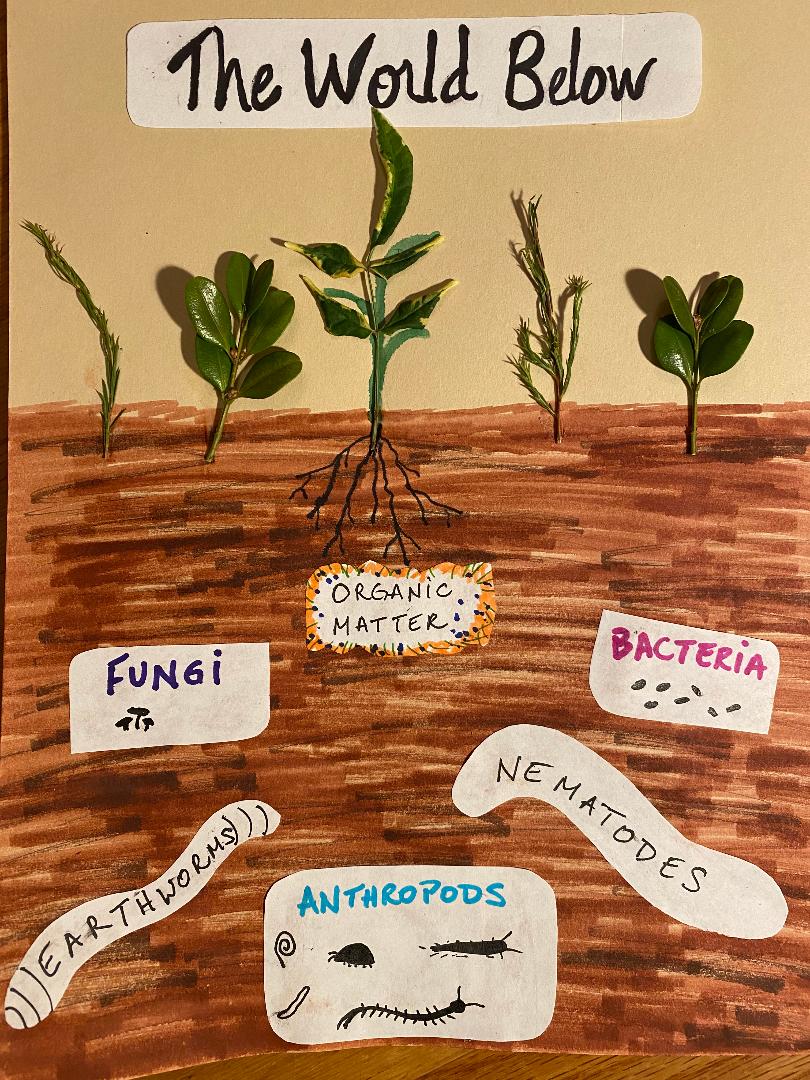 The World Below
ORGANIC
MATTER
FUNGi
BACTERiA
NEMATODES
EARTHWORMS
ANTHROPODS